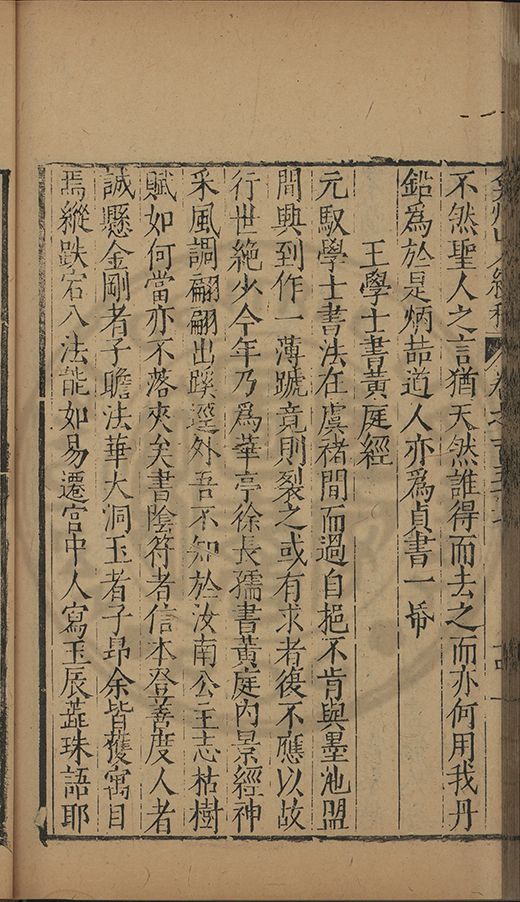 弇州山人續稿 卷之一百六十
不然聖人之言猶天然誰得而去之而亦何用我丹
鉛爲於是炳喆道人亦爲貞書一帋
王學士書黃庭經
元馭學士書法在虞禇間而過自挹不肯與墨池盟
間興到作一薄蹏竟則裂之或有求者復不應以故
行世絶少今年乃爲華亭徐長孺書黃庭內景經神
采風調翩翩出蹊逕外吾不知於汝南公主志枯樹
賦如何當亦不落夾矣書陰符者信本登善度人者
誠懸金剛者子瞻法華大洞玉者子昂余皆獲寓目
焉縱跌宕八法能如易遷宮中人寫玉辰蘂珠語耶